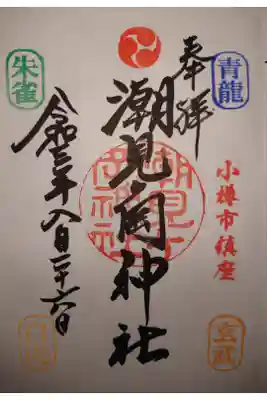 青龍
奉拝
小樽市鎮座
玄武
潮見岡神社
朱雀
令和三年八月二十六日
白虎